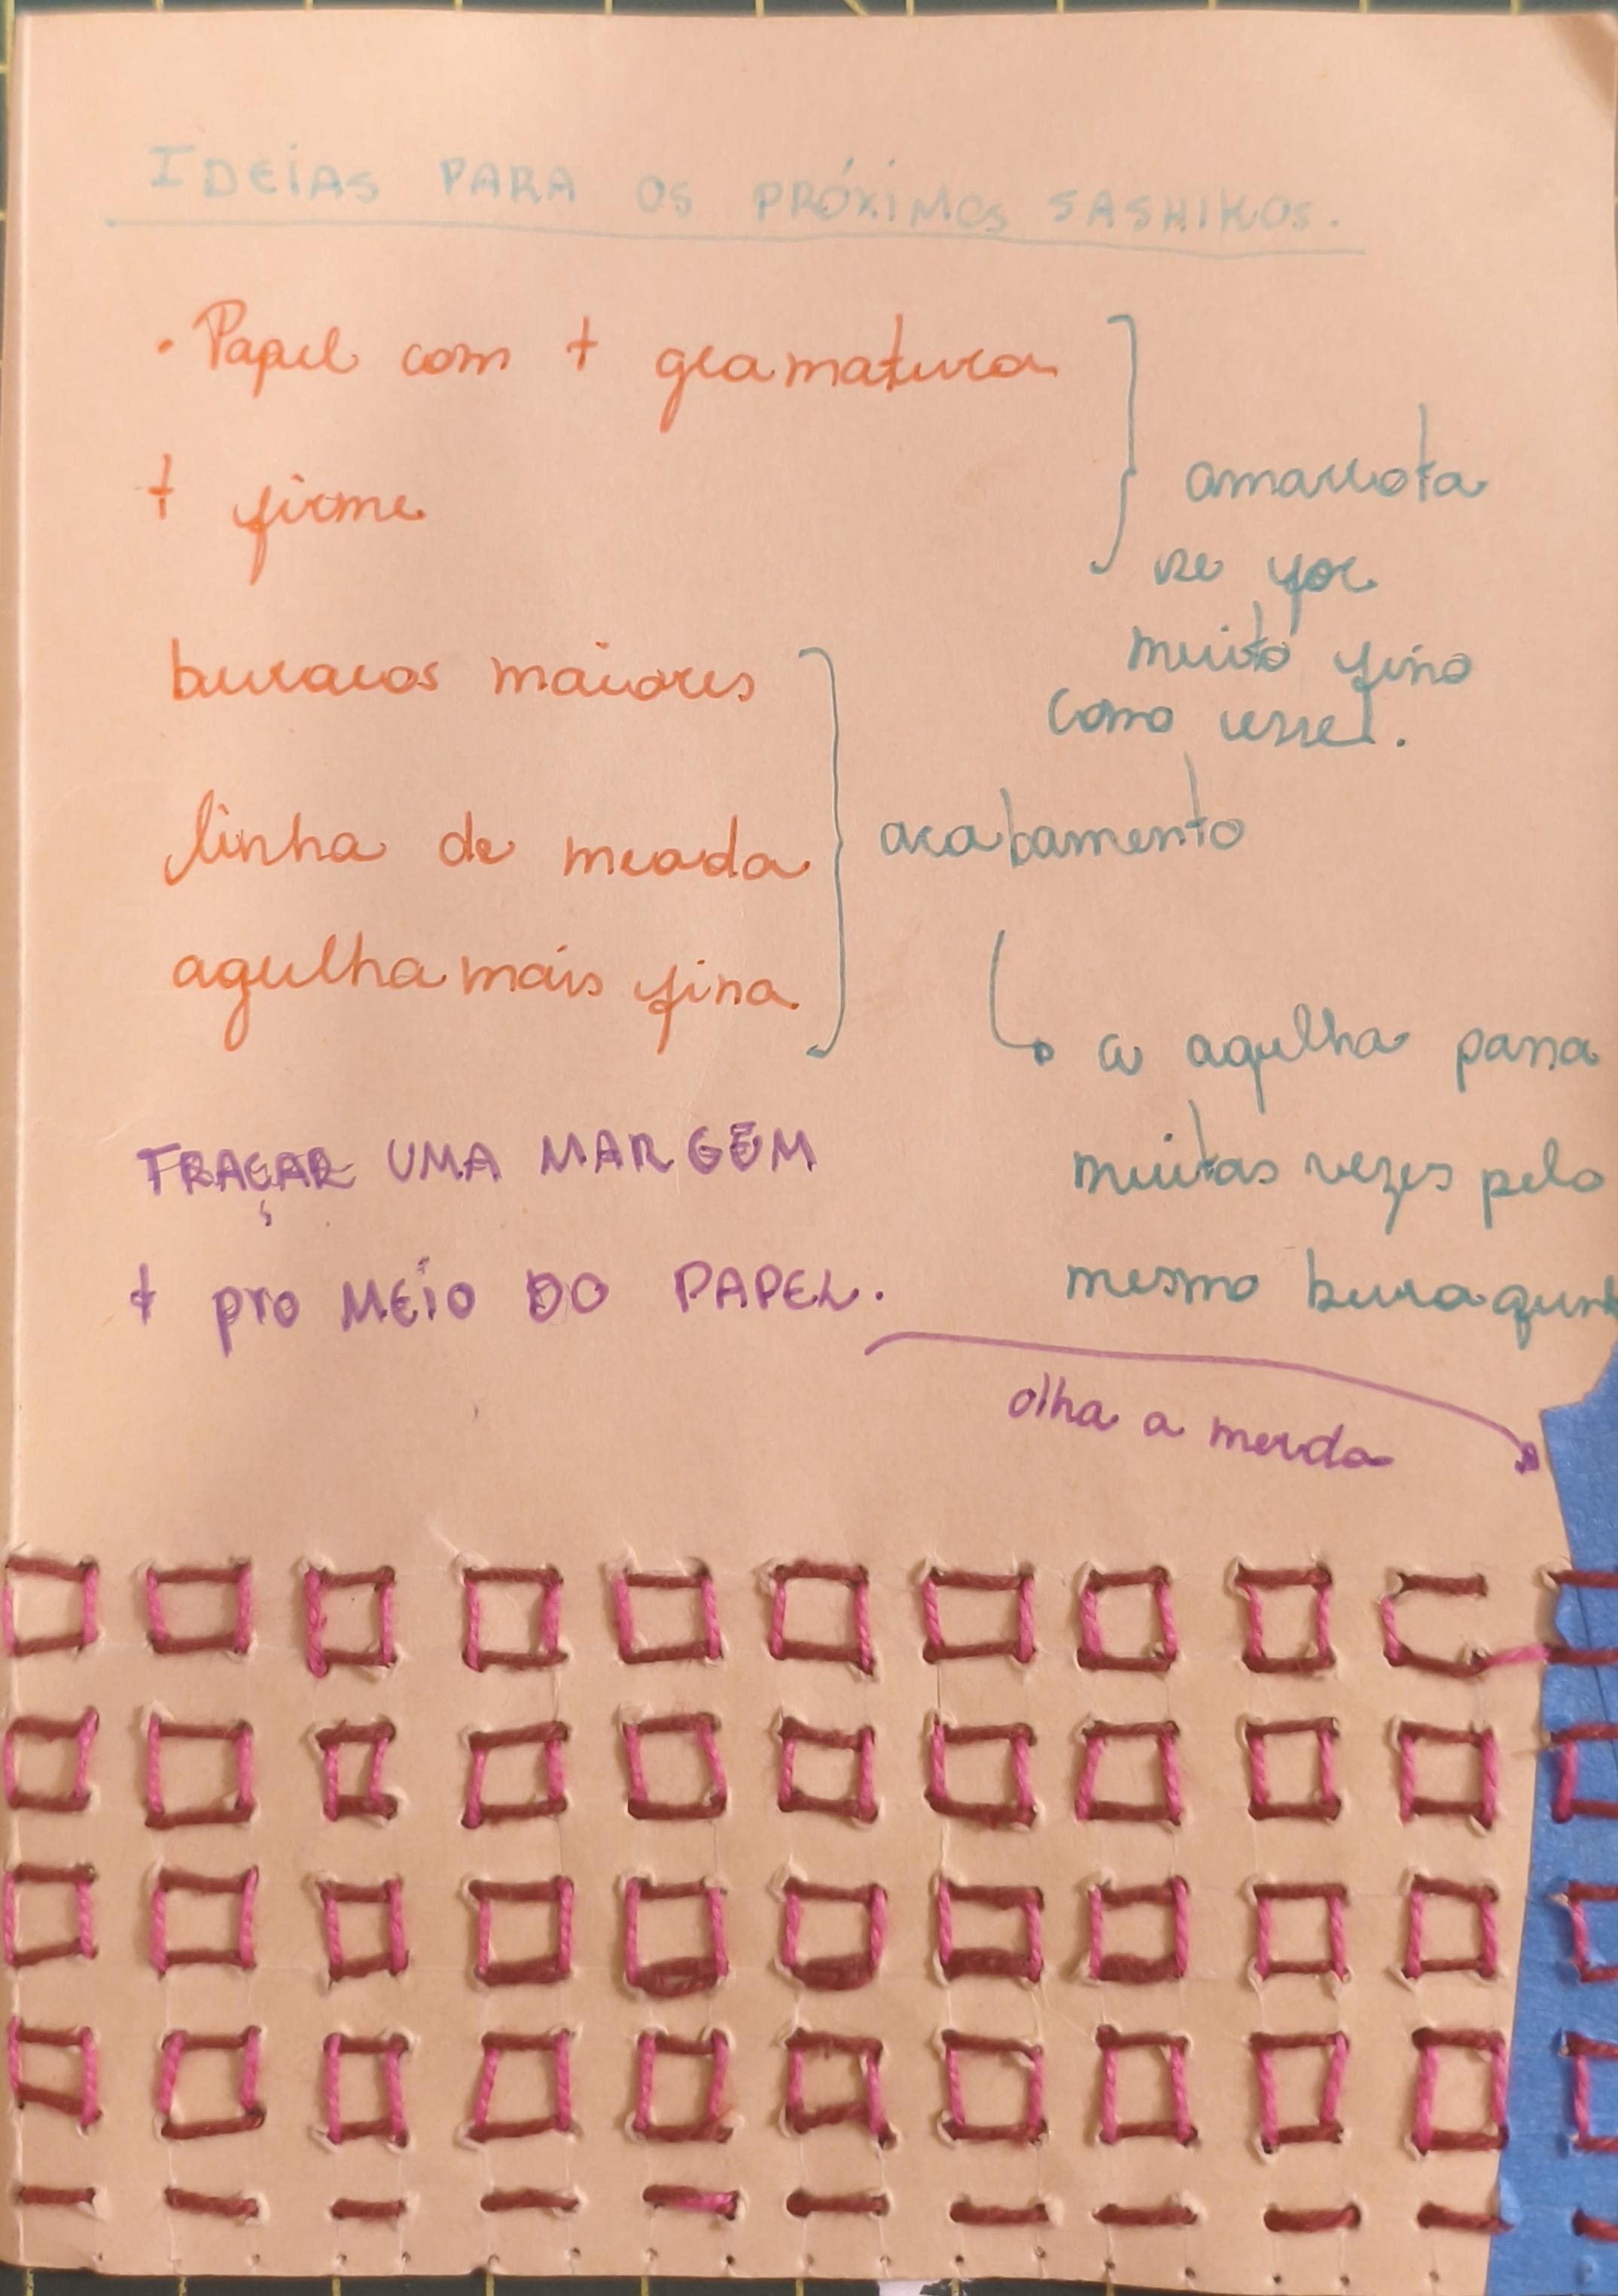 IDEIAS PARA OS PRÓXIMOS SASHIKOS.
· Papel com + gramatura
+ firme
amarrota
se for
muito fino
como esse.
buracos maiores
linha de meada
agulha mais fina
acabamento
a agulha passa
muitas vezes pelo
mesmo buraquinh
TRAÇAR UMA MARGEM
+ pro MEIO DO PAPEL.
olha a merda